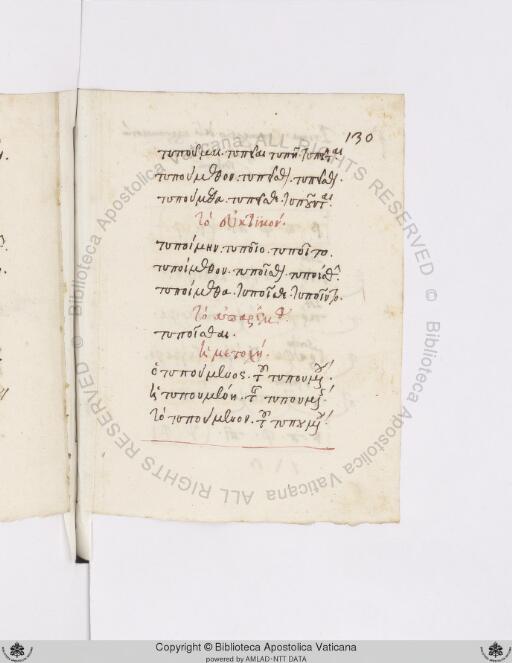 130
τυποῦμαι. τυπεῖ
τυπούμεθον. τυπεῖσθον. τυπεῖσθον.
τυπούμεθα. τυπεῖσθε. τυποῦνται
τὸ εὐκτικόν.
τυποίμην. τυποῖο. τυποῖτο.
τυποίμεθον. τυποῖσθον. τυποίσθην
τυποίμεθα. τυποῖσθε. τυποῖντο.
τὸ ἀπαρέμφατ
ἡ μετοχή.
ὁ τυπούμενος. τοῦ τυπουμένου
ἡ τυπουμένη. τῆς τυπουμένης
τὸ τυπούμενον. τοῦ τυπουμένου
Copyright © Biblioteca Apostolica Vaticana
powered by AMLAD-NTT DATA
© Biblioteca Apostolica Vaticana ALL RIGHTS RESERVED